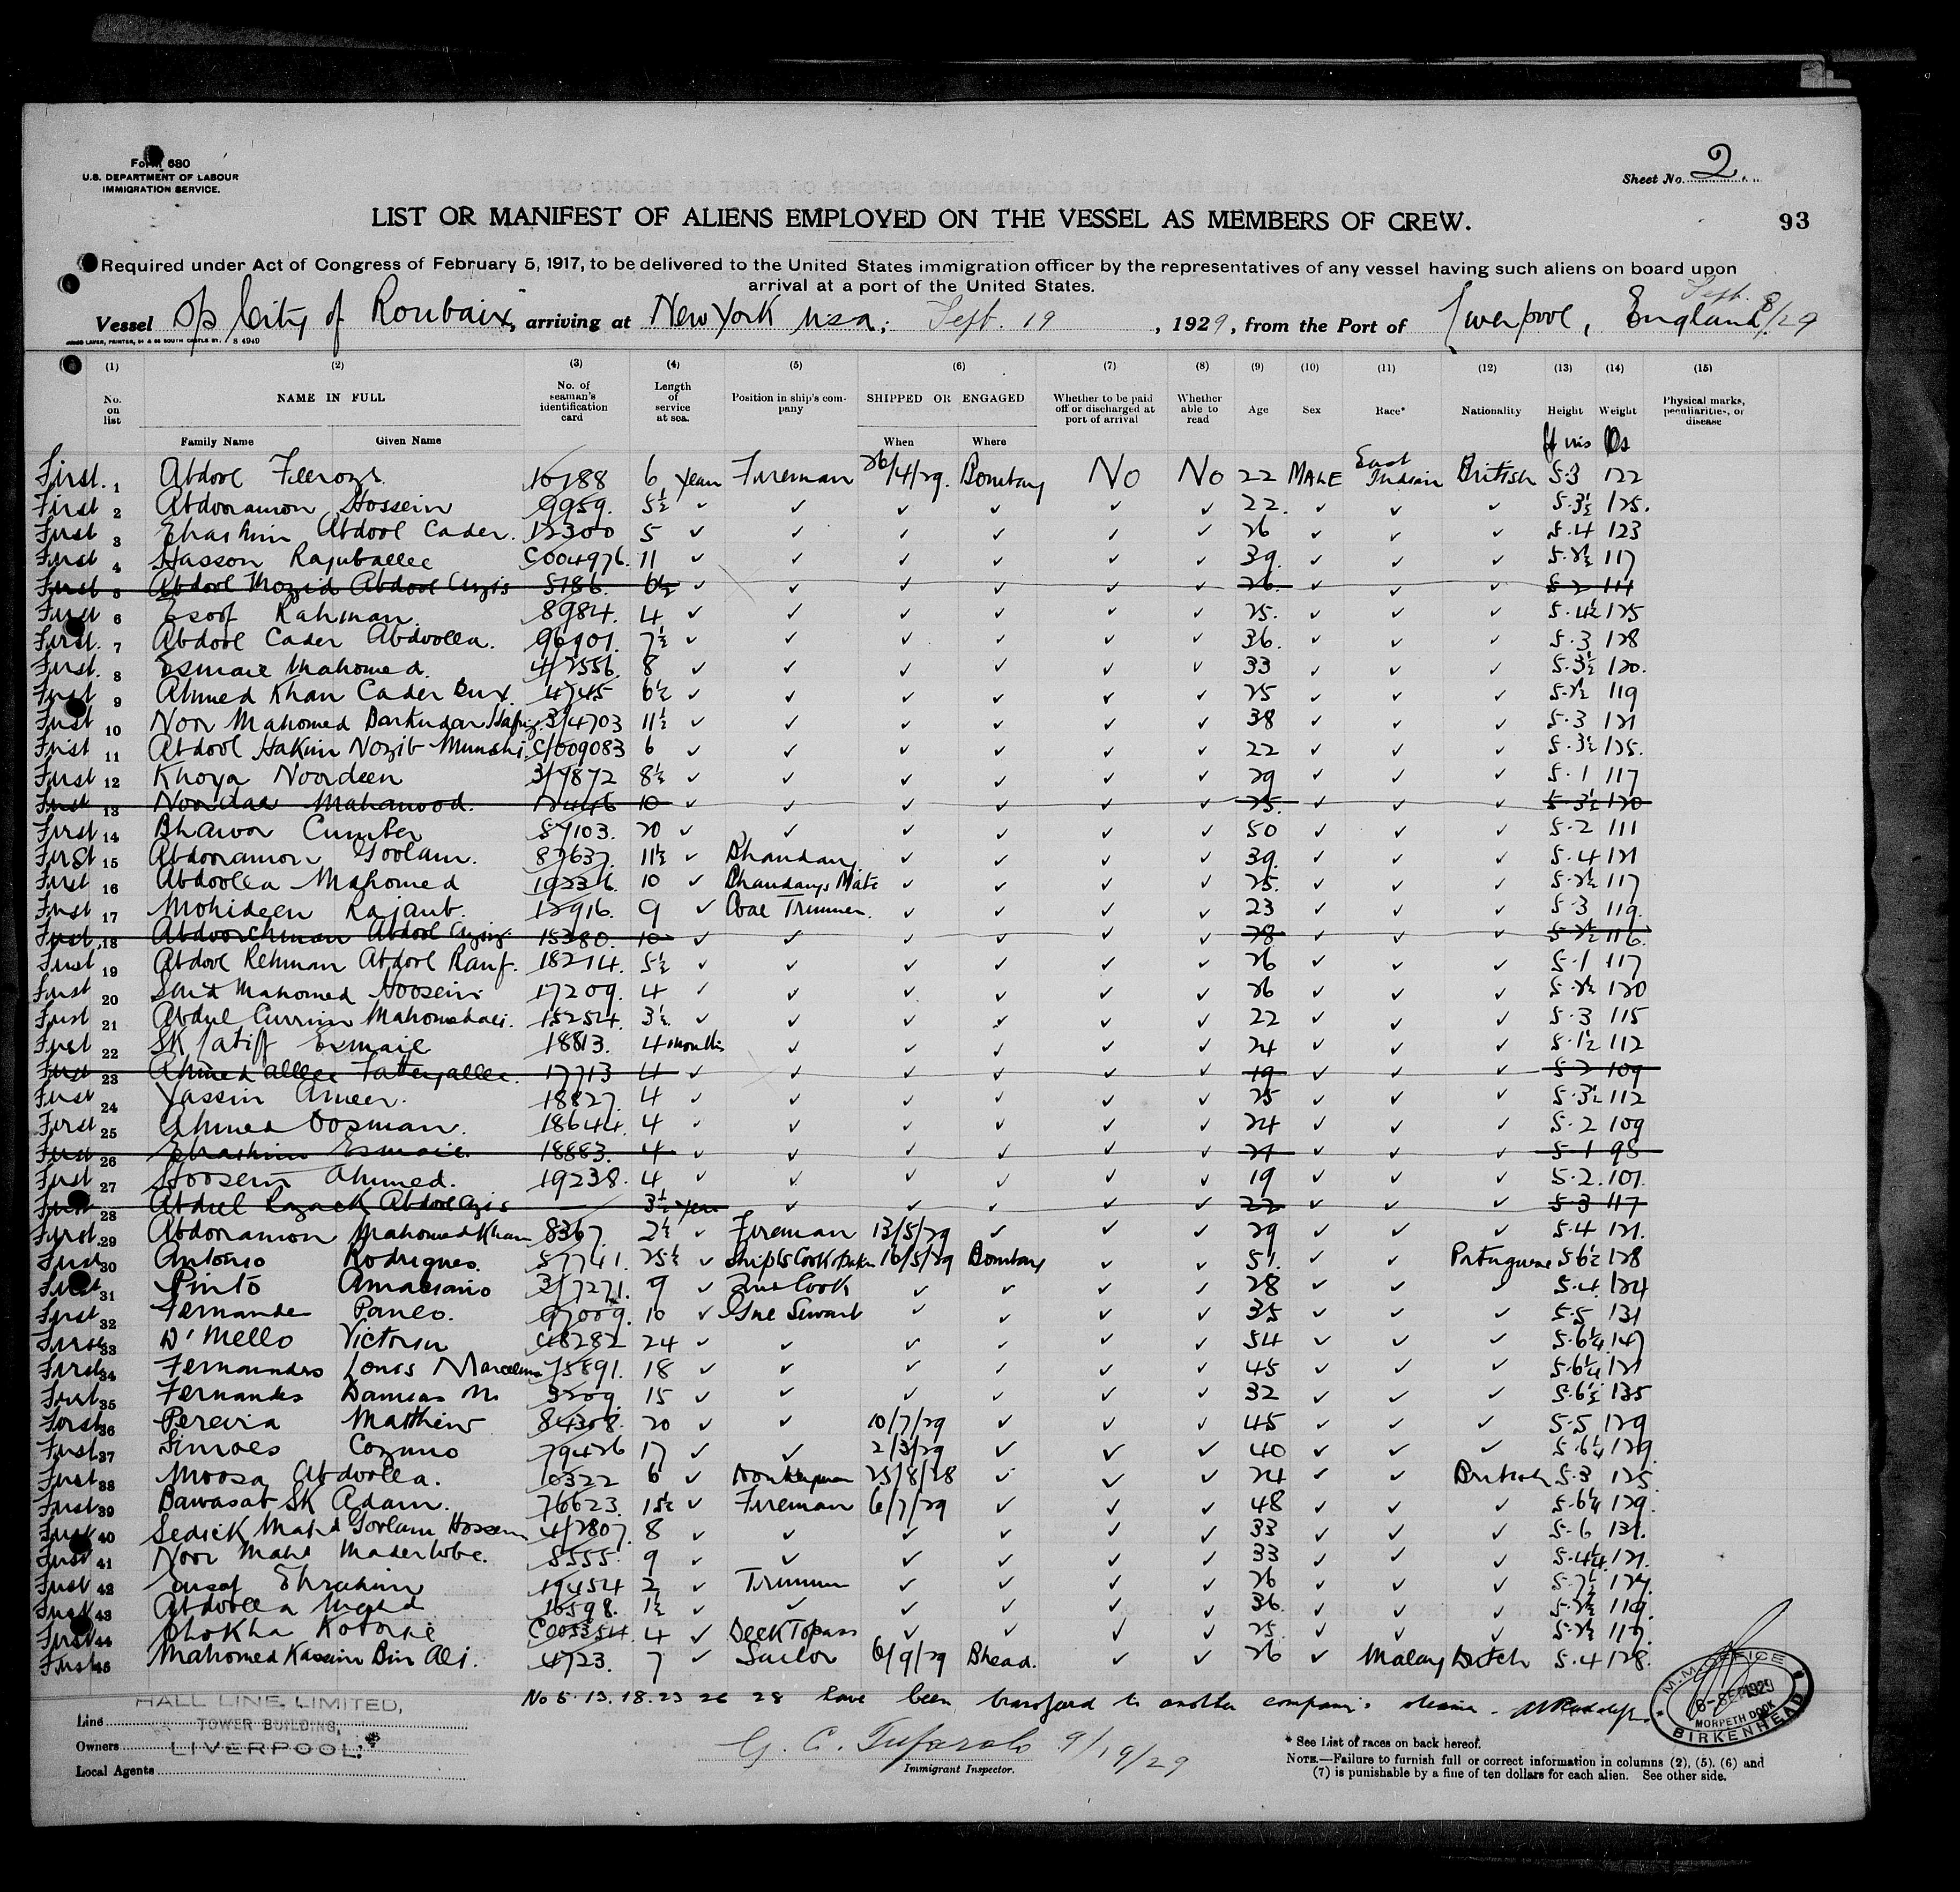 Form 680
U.S. DEPARTMENT OF LABOUR
IMMIGRATION SERVICE.
Sheet No. 2
LIST OR MANIFEST OF ALIENS EMPLOYED ON THE VESSEL AS MEMBERS OF CREW.
93
Required under Act of Congress of February 5, 1917, to be delivered to the United States immigration officer by the representatives of any vessel having such aliens on board upon
arrival at a port of the United States.
Vessel City of Roubaix, arriving at New York USA; Sept. 19, 1929, from the Port of Liverpool, England, Sept. 8/29
(1) (2) (3) (4) (5) (6) (7) (8) (9) (10) (11) (12) (13) (14) (15)
No. on list NAME IN FULL No. of seaman's identification card Length of service at sea. Position in ship's company SHIPPED OR ENGAGED Whether to be paid off or discharged at port of arrival Whether able to read Age Sex Race* Nationality Height Weight Physical marks, peculiarities, or disease
Family Name Given Name When Where ft ins lbs
First. 1 Abdool Feeroze 6 year Fireman 26/4/29. Bombay No No 22 MALE East Indian British 5.3 122
First 2 Abdooramon Hossein 9959. 5½ ✓ ✓ ✓ ✓ ✓ ✓ 22. ✓ ✓ ✓ 5.3½ 125.
First 3 Ebrahim Abdool Cader. 12300 5 ✓ ✓ ✓ ✓ ✓ ✓ 26 ✓ ✓ ✓ 5.4 123
First 4 Hasson Rajuballee C004976. 11 ✓ ✓ ✓ ✓ ✓ ✓ 39. ✓ ✓ ✓ 5.2½ 117
First 5 Abdool Mozid Abdool Azis 5186. 6½ ✓ ✓ ✓ ✓ ✓ ✓ 26. ✓ ✓ ✓ 5.2 111
First 6 Esoof Rahman. 8984. 4 ✓ ✓ ✓ ✓ ✓ ✓ 25. ✓ ✓ ✓ 5.4½ 125
First. 7 Abdool Cader Abdoolla. 96901. 7½ ✓ ✓ ✓ ✓ ✓ ✓ 36. ✓ ✓ ✓ 5.3 128
First. 8 Esmail Mahomed. 4/2556 8 ✓ ✓ ✓ ✓ ✓ ✓ 33 ✓ ✓ ✓ 5.3½ 120.
First 9 Ahmed Khan Cader Bux. 4745 6½ ✓ ✓ ✓ ✓ ✓ ✓ 25 ✓ ✓ ✓ 5.2½ 119
First 10 Noor Mahomed Barkudar 3/4703 11½ ✓ ✓ ✓ ✓ ✓ ✓ 38 ✓ ✓ ✓ 5.3 121
First 11 Abdool Hakim Nozib Munshi C/009083 6 ✓ ✓ ✓ ✓ ✓ ✓ 22 ✓ ✓ ✓ 5.3½ 125.
First 12 Khoya Noordeen 3/7872 8½ ✓ ✓ ✓ ✓ ✓ ✓ 29 ✓ ✓ ✓ 5.1 117
First 13 Mahamood. 10 ✓ ✓ ✓ ✓ ✓ ✓ 25. ✓ ✓ ✓ 5.3½ 120
First 14 Bhawoo 57103. 20 ✓ ✓ ✓ ✓ ✓ ✓ 50 ✓ ✓ ✓ 5.2 111
First 15 Abdooramon Goolam. 87637. 11½ ✓ Bhandary ✓ ✓ ✓ ✓ 39. ✓ ✓ ✓ 5.4 121
First 16 Abdoolla Mahomed 10 ✓ Bhandarys Mate ✓ ✓ ✓ ✓ 25. ✓ ✓ ✓ 5.2½ 117
First 17 Mohideen Rajaub. 12916. 9 ✓ Coal Trimmer. ✓ ✓ ✓ ✓ 23 ✓ ✓ ✓ 5.3 119.
First 18 Abdoorehman Abdool Azis 15380. 10 ✓ ✓ ✓ ✓ ✓ ✓ 28 ✓ ✓ ✓ 5.2½ 116.
First 19 Abdool Rehman Abdool Rauf. 18214. 5½ ✓ ✓ ✓ ✓ ✓ ✓ 26 ✓ ✓ ✓ 5.1 117
First 20 Mahomed Hoosein 17209. 4 ✓ ✓ ✓ ✓ ✓ ✓ 26 ✓ ✓ ✓ 5.2½ 120
First 21 Abdul Currim Mahomedali. 15254. 3½ ✓ ✓ ✓ ✓ ✓ ✓ 22 ✓ ✓ ✓ 5.3 115
First 22 SK Latiff Esmail 18813. 4 months ✓ ✓ ✓ ✓ ✓ 24 ✓ ✓ ✓ 5.1½ 112
First 23 Ahmed allee Fattey allee. 17713 4 ✓ ✓ ✓ ✓ ✓ ✓ 19 ✓ ✓ ✓ 5.2 109
First 24 Yassin Ameer. 18827. 4 ✓ ✓ ✓ ✓ ✓ ✓ 25 ✓ ✓ ✓ 5.3½ 112
First 25 Ahmed Oosman. 18644. 4 ✓ ✓ ✓ ✓ ✓ ✓ 24 ✓ ✓ ✓ 5.2 109
First 26 Ebrahim Esmail. 18883. 4 ✓ ✓ ✓ ✓ ✓ ✓ 21 ✓ ✓ ✓ 5.1 95
First 27 Hoosein Ahmed. 19238. 4 ✓ ✓ ✓ ✓ ✓ ✓ 19 ✓ ✓ ✓ 5.2. 101.
First 28 Abdul Razack Abdool Azis 3½ year ✓ ✓ ✓ ✓ ✓ 22 ✓ ✓ ✓ 5.3 117
First. 29 Abdooramon Mahomed Khan 8367. 2½ ✓ Fireman 13/5/29 ✓ ✓ ✓ 29 ✓ ✓ ✓ 5.4 121.
First 30 Antonio Rodrigues. 57741. 25½ ✓ Ships Cook & Baker 16/5/29 Bombay ✓ ✓ 51. ✓ ✓ Portuguese 5.6½ 128
First 31 Pinto 3/7271. 9 ✓ Cook ✓ ✓ ✓ ✓ 28 ✓ ✓ ✓ 5.4. 124
First 32 Fernandes 97009. 10 ✓ ✓ ✓ ✓ ✓ 35 ✓ ✓ ✓ 5.5 131
First 33 D'Mello Victorin 48282 24 ✓ ✓ ✓ ✓ ✓ ✓ 54 ✓ ✓ ✓ 5.6¼ 147
First 34 Fernandes Louis Marcelino 75891. 18 ✓ ✓ ✓ ✓ ✓ ✓ 45 ✓ ✓ ✓ 5.6¼ 121
First 35 Fernandes Damiao M 3209. 15 ✓ ✓ ✓ ✓ ✓ ✓ 32 ✓ ✓ ✓ 5.6½ 135
First 36 Pereira Matthew 84308. 20 ✓ ✓ 10/7/29 ✓ ✓ ✓ 45 ✓ ✓ ✓ 5.5 129
First 37 Simoes 79426 17 ✓ ✓ 2/3/29 ✓ ✓ ✓ 40 ✓ ✓ ✓ 5.6¼ 129.
First 38 Moosa Abdoolla. 10322 6 ✓ Donkeyman 25/8/28 ✓ ✓ ✓ 24 ✓ ✓ British 5.3 125
First 39 Bawasab SK Adam. 76623. 15½ ✓ Fireman 6/7/29 ✓ ✓ ✓ 48 ✓ ✓ ✓ 5.6¼ 129.
First 40 Sedick Mahd Goolam Hossein 4/2807. 8 ✓ ✓ ✓ ✓ ✓ ✓ 33 ✓ ✓ ✓ 5.6 131.
First 41 Noor Mahd 5555. 9 ✓ ✓ ✓ ✓ ✓ ✓ 33 ✓ ✓ ✓ 5.4¼ 121.
First 42 Eusof Ebrahim 19454 2 ✓ Trimmer ✓ ✓ ✓ ✓ 26 ✓ ✓ ✓ 5.7½
First 43 Abdoolla 16598. 1½ ✓ ✓ ✓ ✓ ✓ ✓ 36. ✓ ✓ ✓ 5.2½ 119.
First 44 Dhokha C005354. 4 ✓ Deck Topass ✓ ✓ ✓ ✓ 25. ✓ ✓ ✓ 5.2½ 117.
First 45 Mahomed Kassim Bin Ali. 4723. 7 ✓ Sailor 6/9/29 Bhead. ✓ ✓ 26 ✓ Malay Dutch 5.4 128.
No 5. 13. 18. 23 26 28 have been transferd to another company's steamer.
Line HALL LINE, LIMITED,
TOWER BUILDING,
Owners LIVERPOOL.
Local Agents
G. C. Tufarolo 9/19/29
Immigrant Inspector.
* See List of races on back hereof.
NOTE.—Failure to furnish full or correct information in columns (2), (5), (6) and
(7) is punishable by a fine of ten dollars for each alien. See other side.
M.M. OFFICE
6-SEP 1929
MORPETH DOCK
BIRKENHEAD